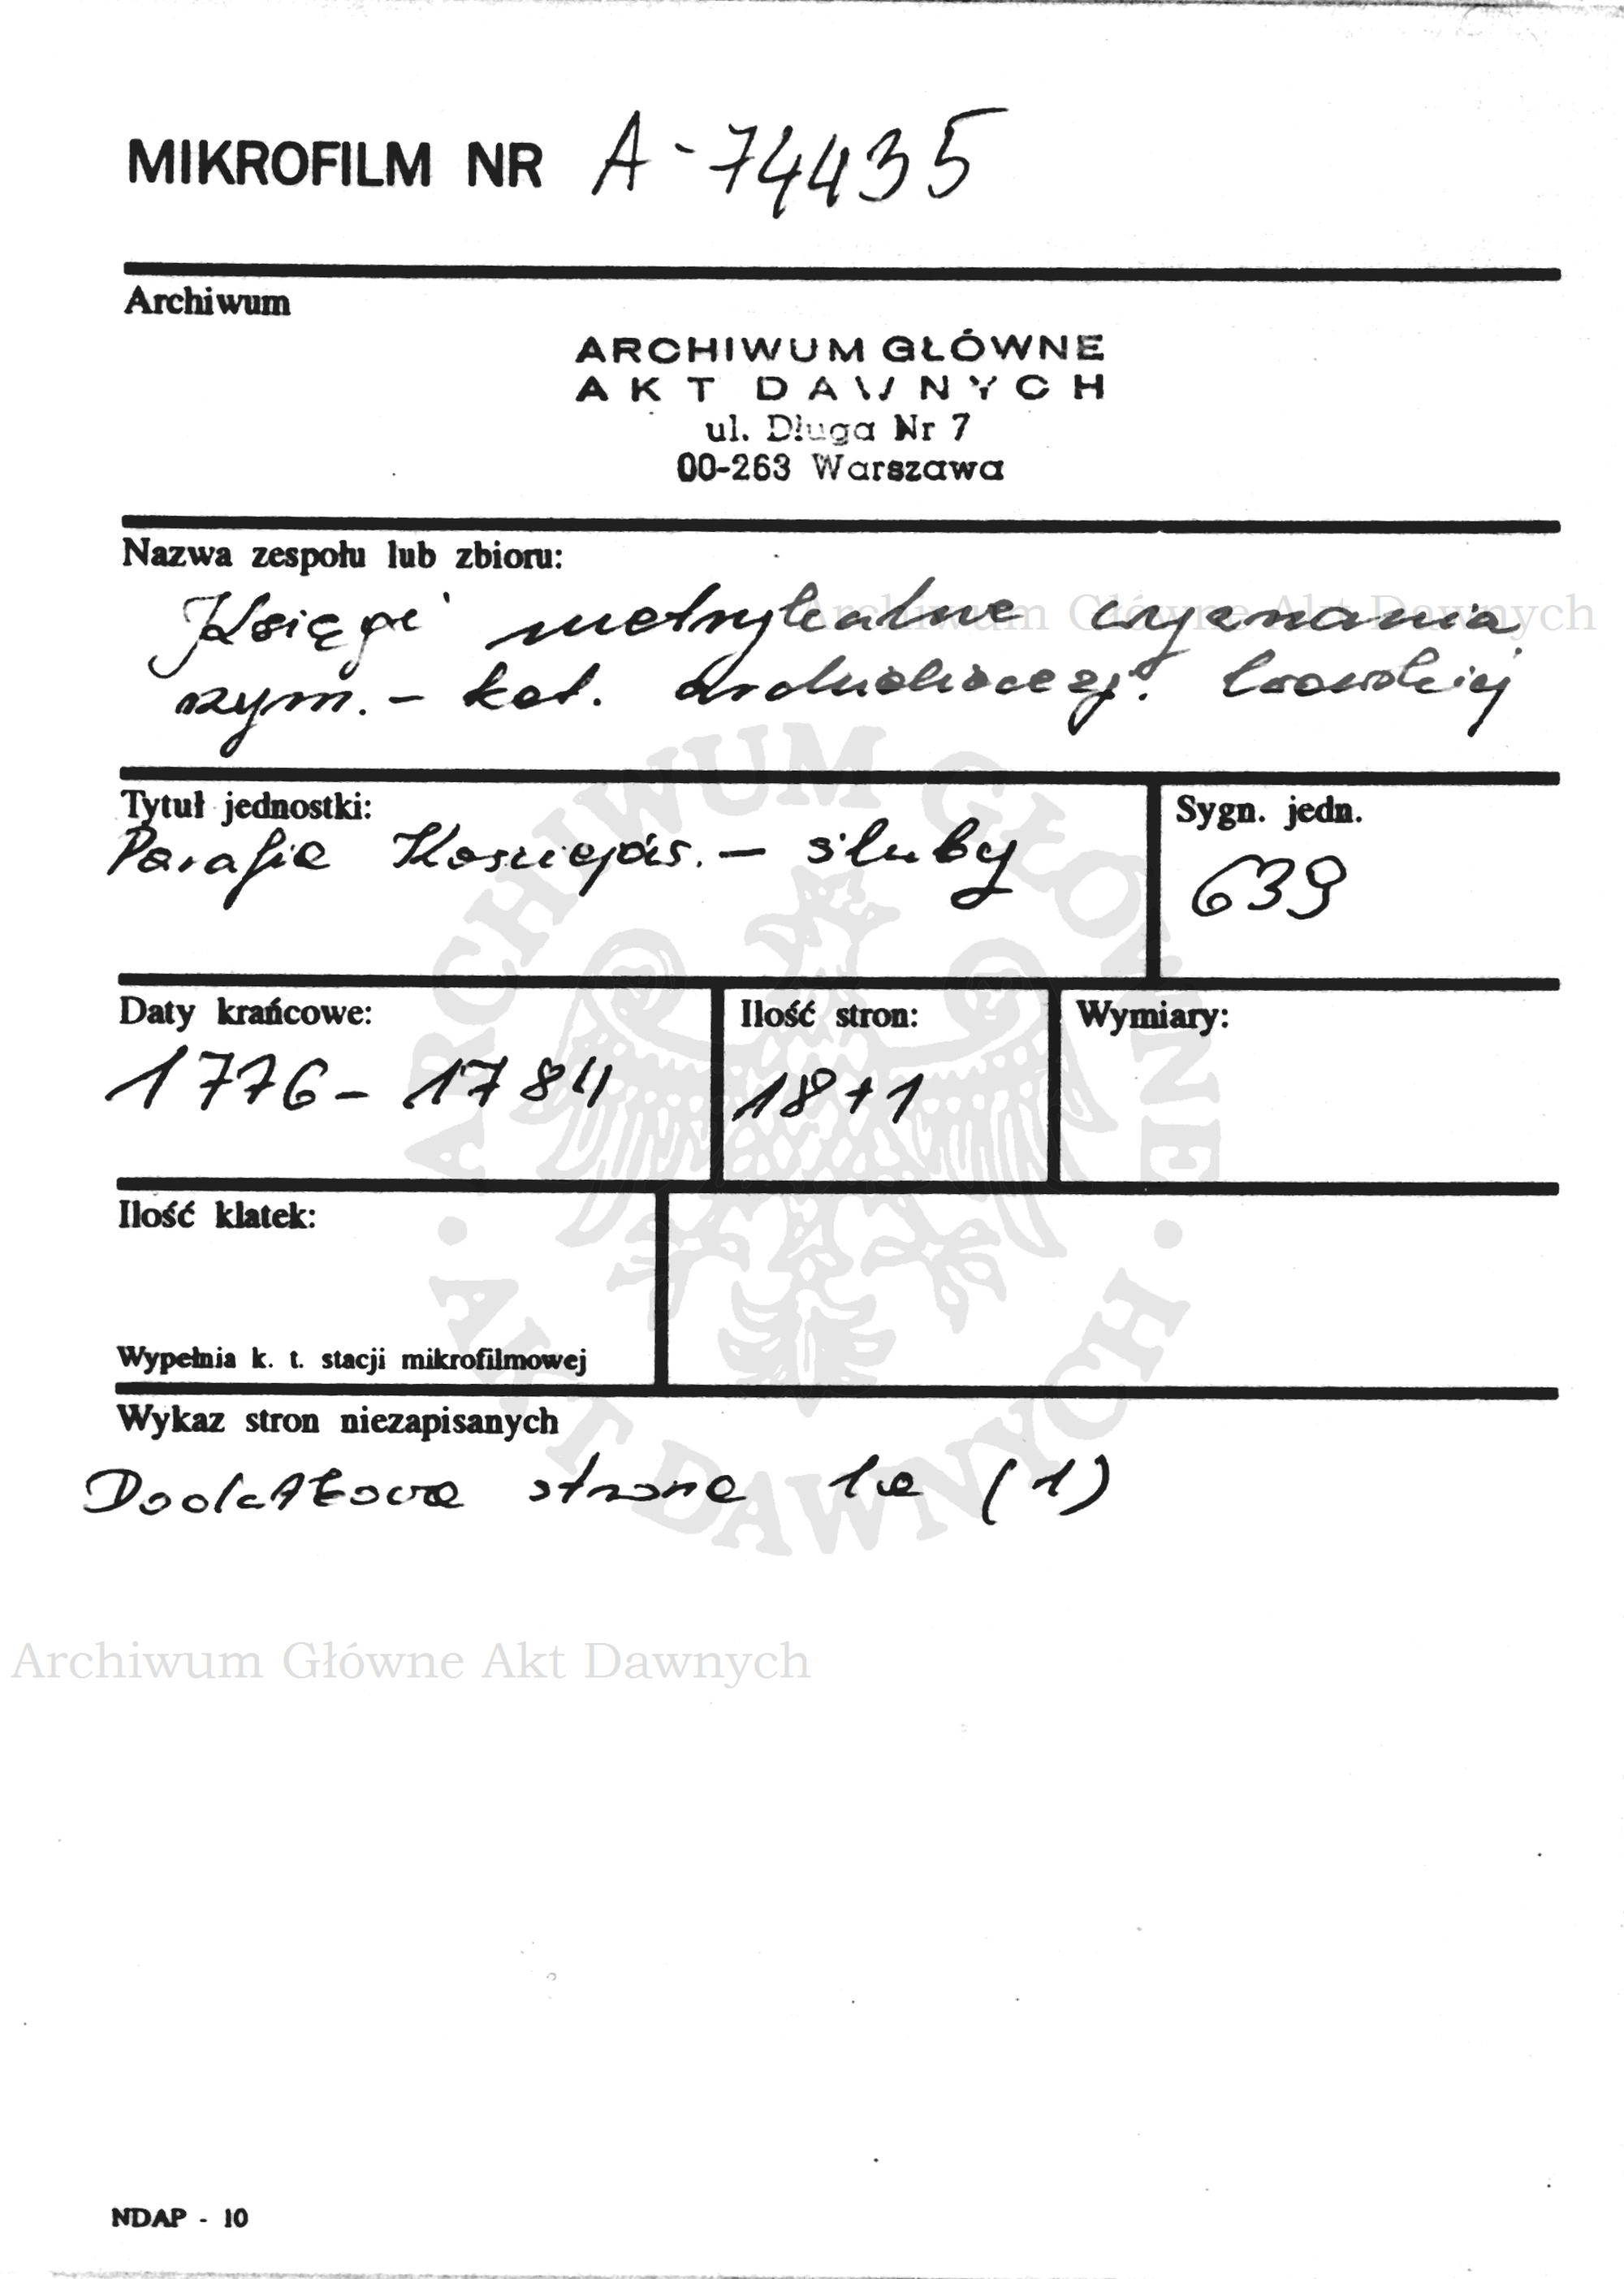 MIKROFILM NR A-74435
Archiwum
ARCHIWUM GŁÓWNE
AKT DAWNYCH
ul. Długa Nr 7
00-263 Warszawa
Nazwa zespołu lub zbioru:
Księgi metrykalne wyznania
Archiwum Główne Akt Dawnych
rzym. - kat. archidiecezji lwowskiej
Tytuł jednostki:
Parafia - śluby
Sygn. jedn.
639
Daty krańcowe:
1776 - 1784
Ilość stron:
18+1
Wymiary:
Ilość klatek:
Wypełnia k. t. stacji mikrofilmowej
Wykaz stron niezapisanych
Dodatkowa strona 1a (1)
ARCHIWUM GŁÓWNE · AKT DAWNYCH ·
Archiwum Główne Akt Dawnych
NDAP - 10